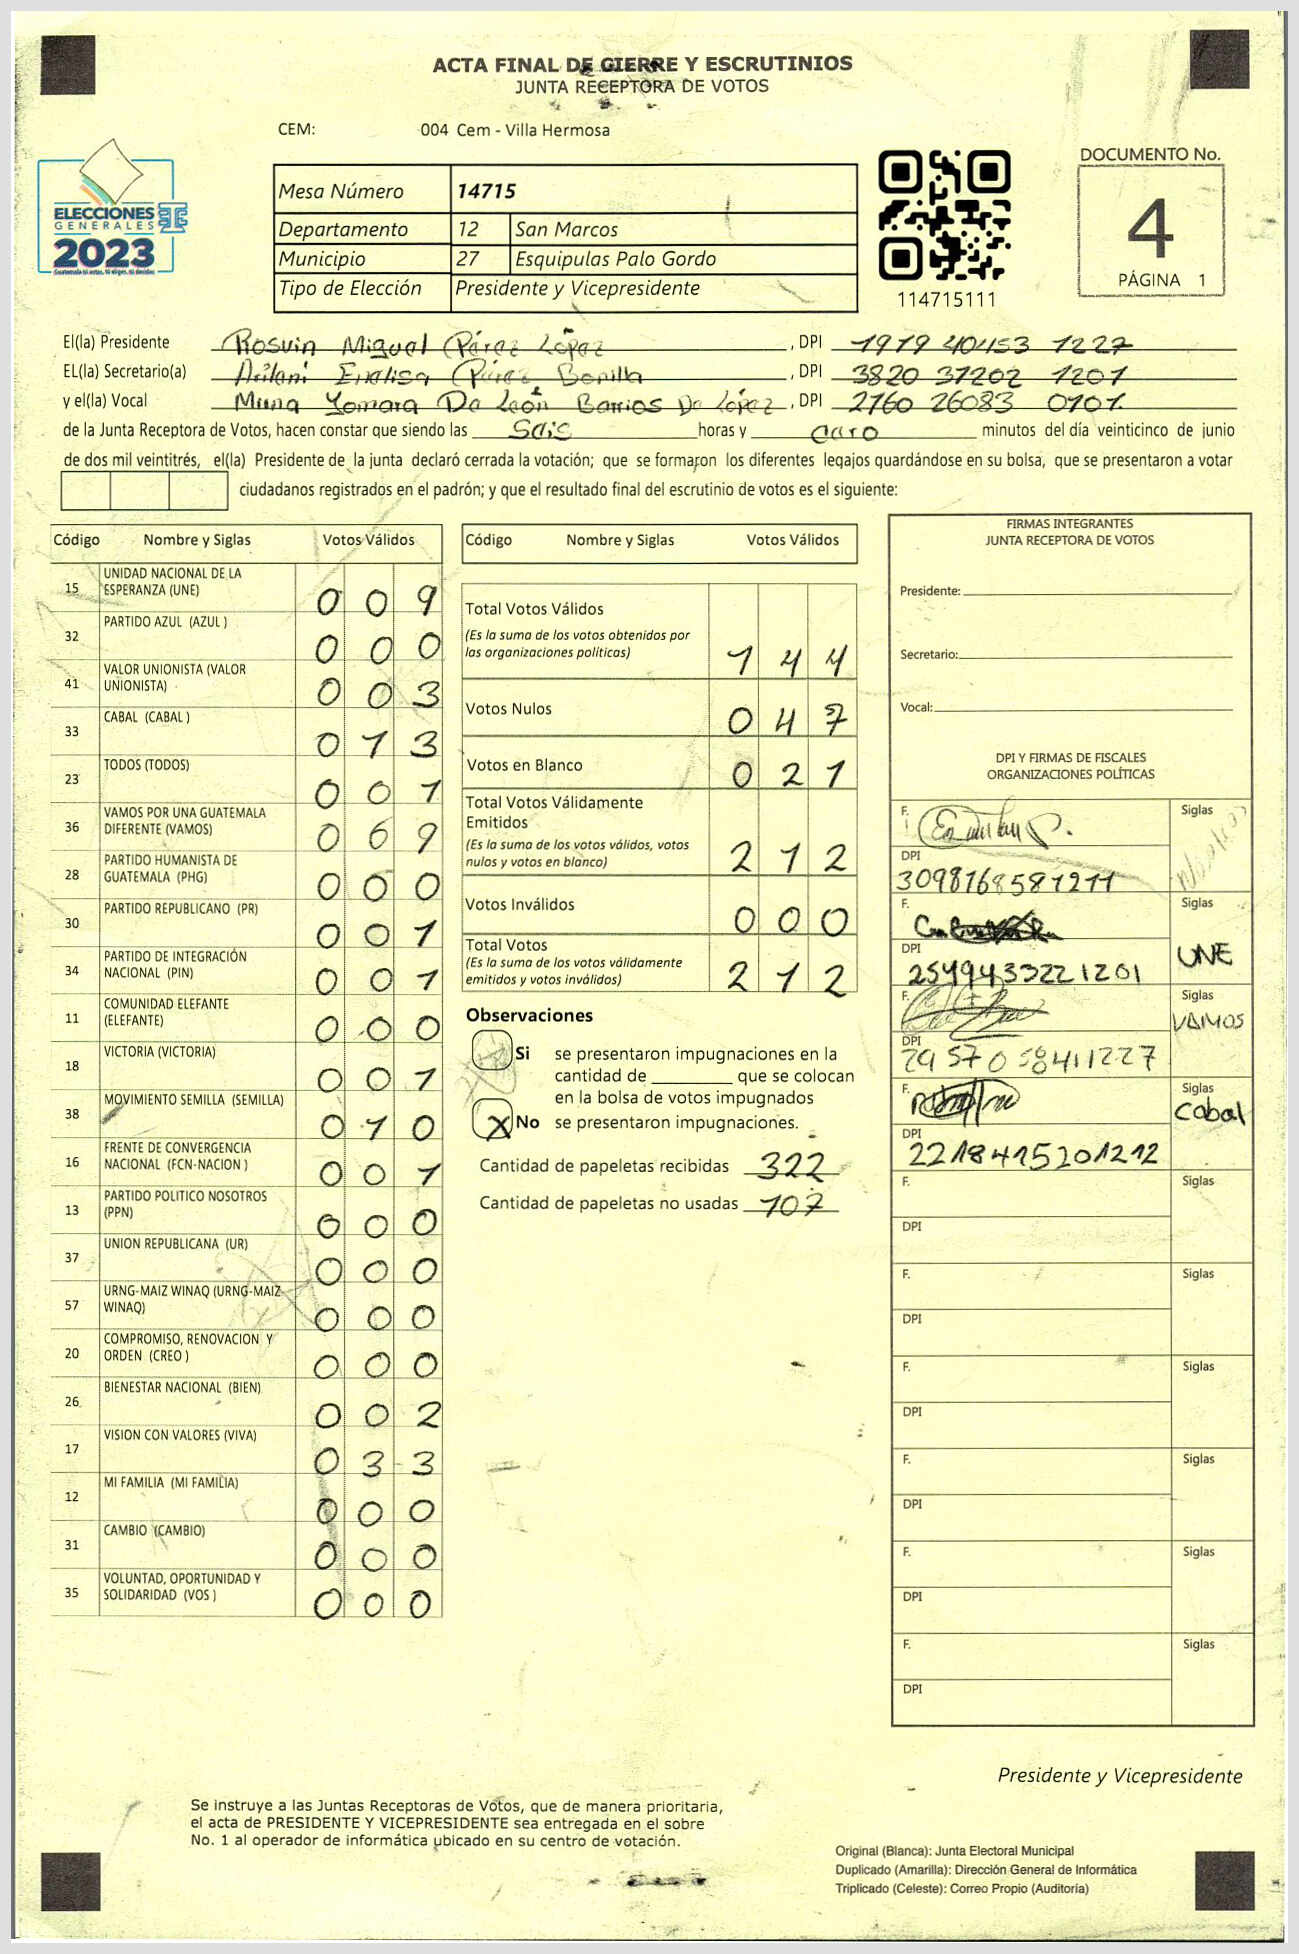 ACTA FINAL DE CIERRE Y ESCRUTINIOS
JUNTA RECEPTORA DE VOTOS
CEM: 004 Cem - Villa Hermosa
ELECCIONES
GENERALES
2023
Mesa Número 14715
Departamento 12 San Marcos
Municipio 27 Esquipulas Palo Gordo
Tipo de Elección Presidente y Vicepresidente
114715111
DOCUMENTO No.
4
PÁGINA 1
El(la) Presidente Rosvin Miguel Pérez López, DPI 1979 40453 1227
EL(la) Secretario(a) Pérez Bonilla, DPI 3820 37202 1201
y el(la) Vocal Yomara De León Barrios De López, DPI 2760 26083 0101
de la Junta Receptora de Votos, hacen constar que siendo las Seis horas y cero minutos del día veinticinco de junio
de dos mil veintitrés, el(la) Presidente de la junta declaró cerrada la votación; que se formaron los diferentes legajos guardándose en su bolsa, que se presentaron a votar
ciudadanos registrados en el padrón; y que el resultado final del escrutinio de votos es el siguiente:
Código Nombre y Siglas Votos Válidos
15 UNIDAD NACIONAL DE LA ESPERANZA (UNE) 0 0 9
32 PARTIDO AZUL (AZUL ) 0 0 0
41 VALOR UNIONISTA (VALOR UNIONISTA) 0 0 3
33 CABAL (CABAL ) 0 1 3
23 TODOS (TODOS) 0 0 1
36 VAMOS POR UNA GUATEMALA DIFERENTE (VAMOS) 0 6 9
28 PARTIDO HUMANISTA DE GUATEMALA (PHG) 0 0 0
30 PARTIDO REPUBLICANO (PR) 0 0 1
34 PARTIDO DE INTEGRACIÓN NACIONAL (PIN) 0 0 1
11 COMUNIDAD ELEFANTE (ELEFANTE) 0 0 0
18 VICTORIA (VICTORIA) 0 0 1
38 MOVIMIENTO SEMILLA (SEMILLA) 0 1 0
16 FRENTE DE CONVERGENCIA NACIONAL (FCN-NACION ) 0 0 1
13 PARTIDO POLITICO NOSOTROS (PPN) 0 0 0
37 UNION REPUBLICANA (UR) 0 0 0
57 URNG-MAIZ WINAQ (URNG-MAIZ WINAQ) 0 0 0
20 COMPROMISO, RENOVACION Y ORDEN (CREO ) 0 0 0
26 BIENESTAR NACIONAL (BIEN) 0 0 2
17 VISION CON VALORES (VIVA) 0 3 3
12 MI FAMILIA (MI FAMILIA) 0 0 0
31 CAMBIO (CAMBIO) 0 0 0
35 VOLUNTAD, OPORTUNIDAD Y SOLIDARIDAD (VOS ) 0 0 0
Código Nombre y Siglas Votos Válidos
Total Votos Válidos 1 4 4
(Es la suma de los votos obtenidos por
las organizaciones políticas)
Votos Nulos 0 4 7
Votos en Blanco 0 2 1
Total Votos Válidamente
Emitidos
(Es la suma de los votos válidos, votos
nulos y votos en blanco) 2 1 2
Votos Inválidos 0 0 0
Total Votos
(Es la suma de los votos válidamente
emitidos y votos inválidos) 2 1 2
Observaciones
Si se presentaron impugnaciones en la
cantidad de ________ que se colocan
en la bolsa de votos impugnados
X No se presentaron impugnaciones.
Cantidad de papeletas recibidas 322
Cantidad de papeletas no usadas 107
FIRMAS INTEGRANTES
JUNTA RECEPTORA DE VOTOS
Presidente:
Secretario:
Vocal:
DPI Y FIRMAS DE FISCALES
ORGANIZACIONES POLÍTICAS
F. Siglas
DPI
3098768581211
F. Siglas
UNE
DPI
2549433221201
F. Siglas
VAMOS
DPI
29570 58411227
F. Siglas
Cabal
DPI
2218415201212
F. Siglas
DPI
F. Siglas
DPI
F. Siglas
DPI
F. Siglas
DPI
F. Siglas
DPI
F. Siglas
DPI
Presidente y Vicepresidente
Se instruye a las Juntas Receptoras de Votos, que de manera prioritaria,
el acta de PRESIDENTE Y VICEPRESIDENTE sea entregada en el sobre
No. 1 al operador de informática ubicado en su centro de votación.
Original (Blanca): Junta Electoral Municipal
Duplicado (Amarilla): Dirección General de Informática
Triplicado (Celeste): Correo Propio (Auditoría)